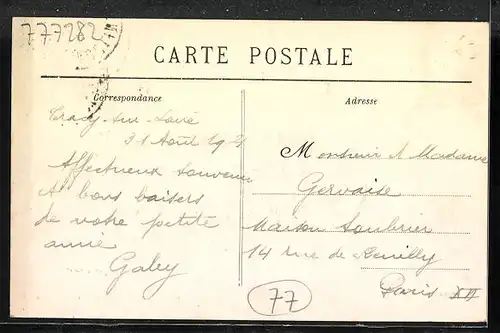 777282
CARTE POSTALE
Correspondance
Adresse
Tracy-sur-Loire
31 Août
Affectueux souvenir
et bons baisers
de votre petite
amie
Gaby
Monsieur et Madame
Gervaise
Maison Soubrier
14 rue de Reuilly
Paris XII
77